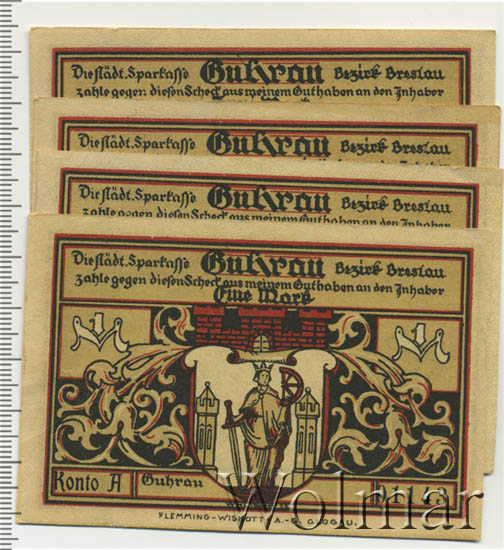 Die städt. Sparkasse Guhrau Bezirk Breslau
zahle gegen diesen Scheck aus meinem Guthaben an den Inhaber
Die städt. Sparkasse Guhrau Bezirk Breslau
Die städt. Sparkasse Guhrau Bezirk Breslau
zahle gegen diesen Scheck aus meinem Guthaben an den Inhaber
Die städt. Sparkasse Guhrau Bezirk Breslau
zahle gegen diesen Scheck aus meinem Guthaben an den Inhaber
Eine Mark
1 M 1 M
Konto A Guhrau
FLEMMING-WISKOTT A.-G. GLOGAU.
Wolmar